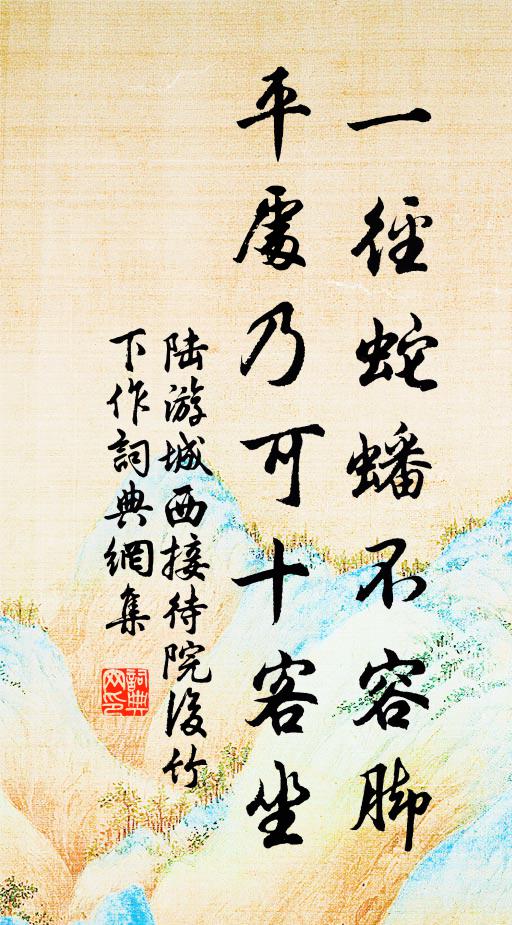 一徑蛇蟠不容脚
平處乃可十客坐
陆游城西接待院後竹
下作詞典網集
詞典网印